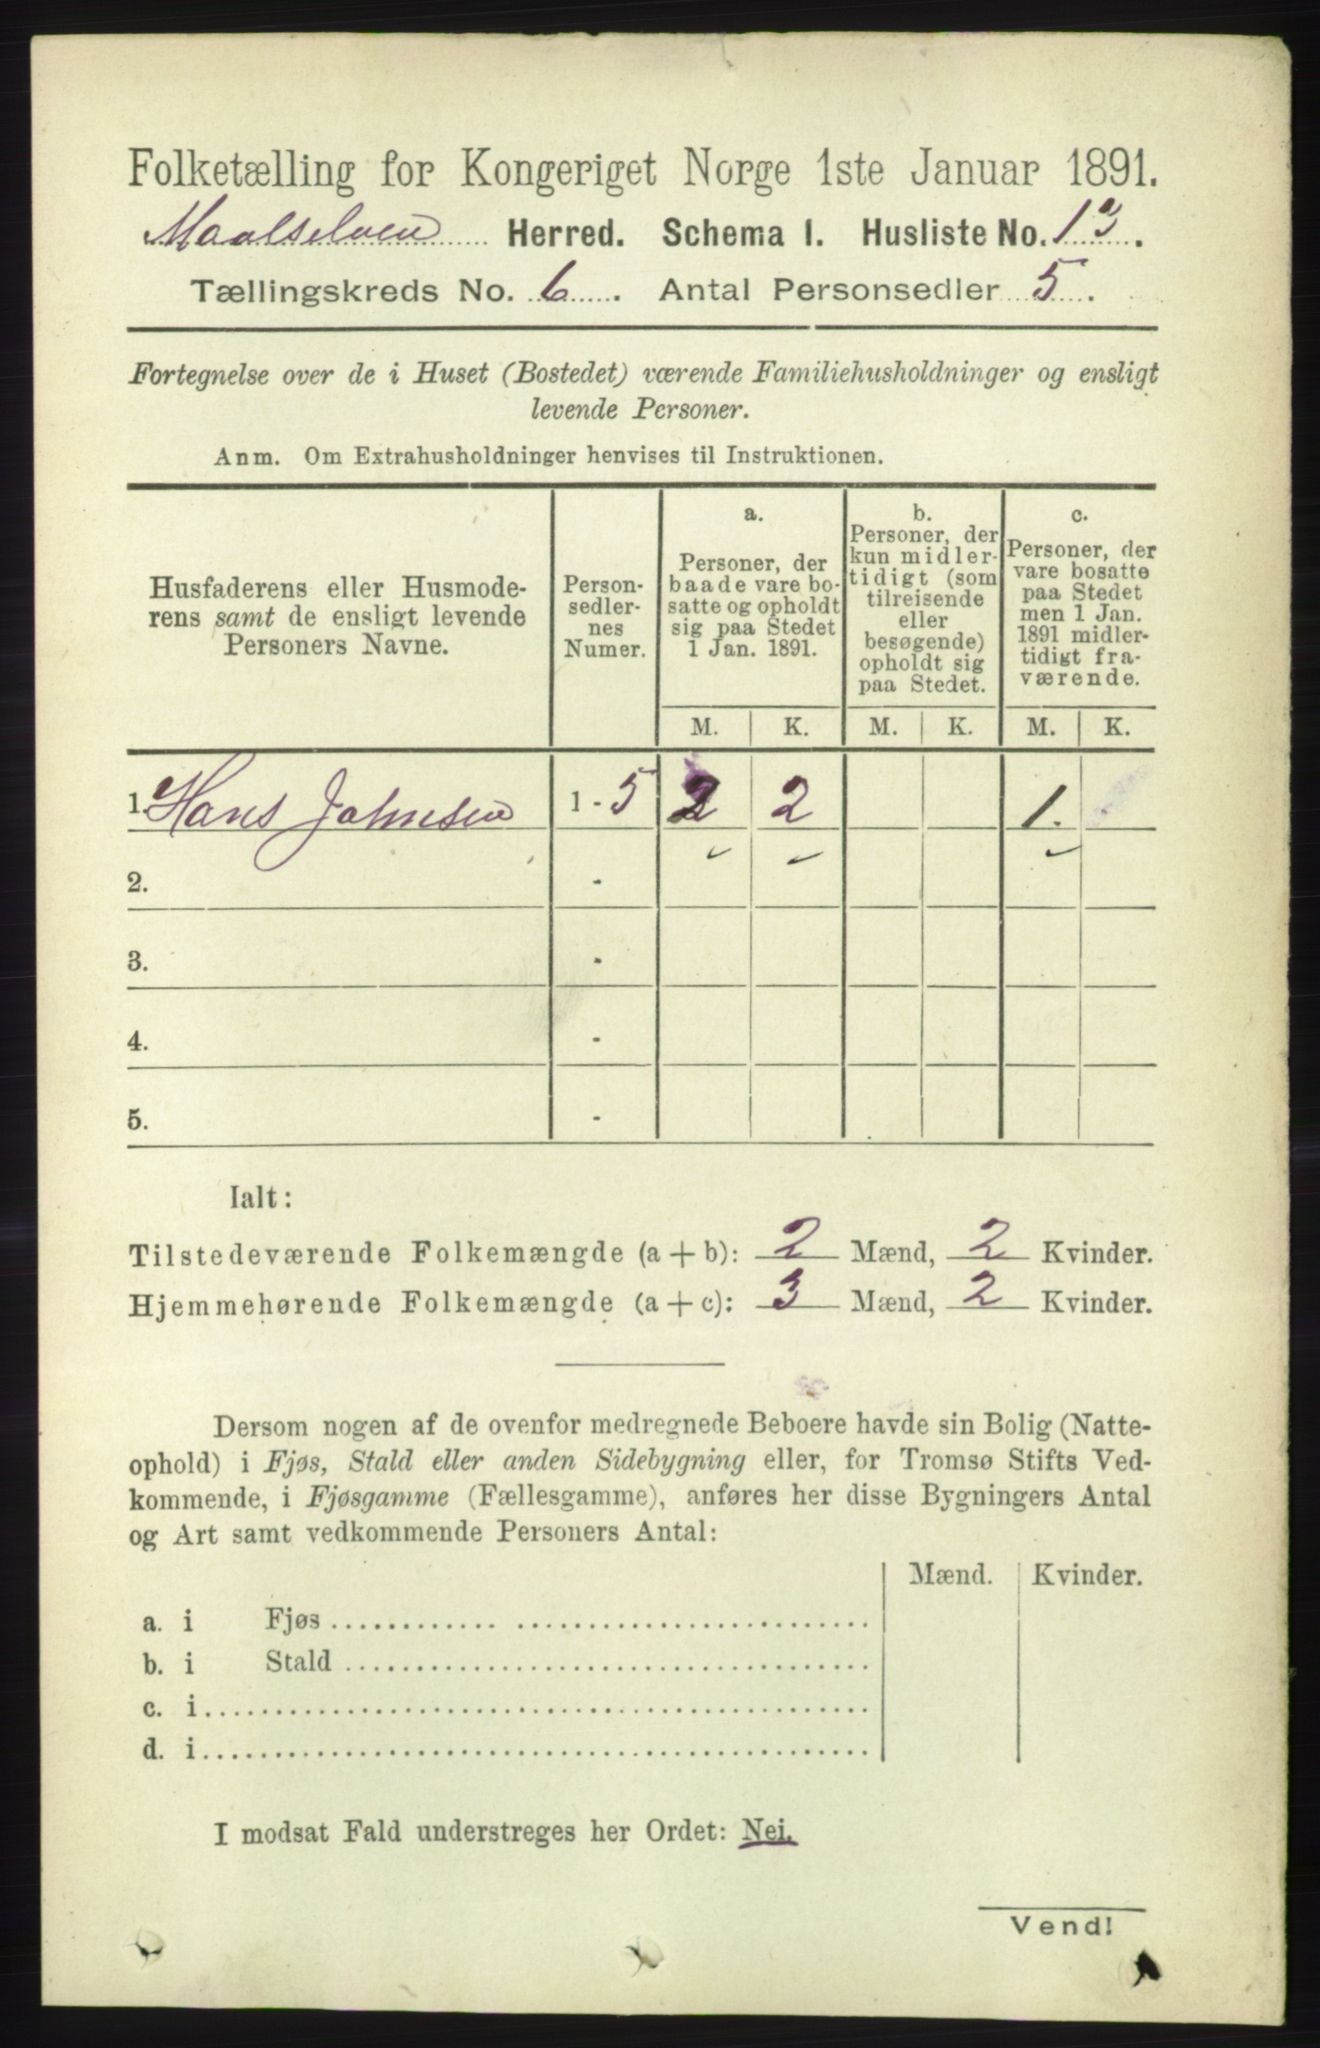 Folketælling for Kongeriget Norge 1ste Januar 1891.
Maalselven Herred. Schema 1. Husliste No. 13.
Tællingskreds No. 6. Antal Personsedler 5.
Fortegnelse over de i Huset (Bostedet) værende Familiehusholdninger og ensligt
levende Personer.
Anm. Om Extrahusholdninger henvises til Instruktionen.
Husfaderens eller Husmode-
rens samt de ensligt levende
Personers Navne.
Person-
sedler-
nes
Numer.
a.
Personer, der
baade vare bo-
satte og opholdt
sig paa Stedet
1 Jan. 1891.
b.
Personer, der
kun midler-
tidigt (som
tilreisende
eller
besøgende)
opholdt sig
paa Stedet.
c.
Personer, der
vare bosatte
paa Stedet
men 1 Jan.
1891 midler-
tidigt fra-
værende.
M. K. M. K. M. K.
1. Hans Johnsen 1 - 5 2 2 1.
2. -
3. -
4. -
5. -
Ialt:
Tilstedeværende Folkemængde (a + b): 2 Mænd, 2 Kvinder.
Hjemmehørende Folkemængde (a + c): 3 Mænd, 2 Kvinder.
Dersom nogen af de ovenfor medregnede Beboere havde sin Bolig (Natte-
ophold) i Fjøs, Stald eller anden Sidebygning eller, for Tromsø Stifts Ved-
kommende, i Fjøsgamme (Fællesgamme), anføres her disse Bygningers Antal
og Art samt vedkommende Personers Antal:
Mænd. Kvinder.
a. i Fjøs
b. i Stald
c. i
d. i
I modsat Fald understreges her Ordet: Nei.
Vend!